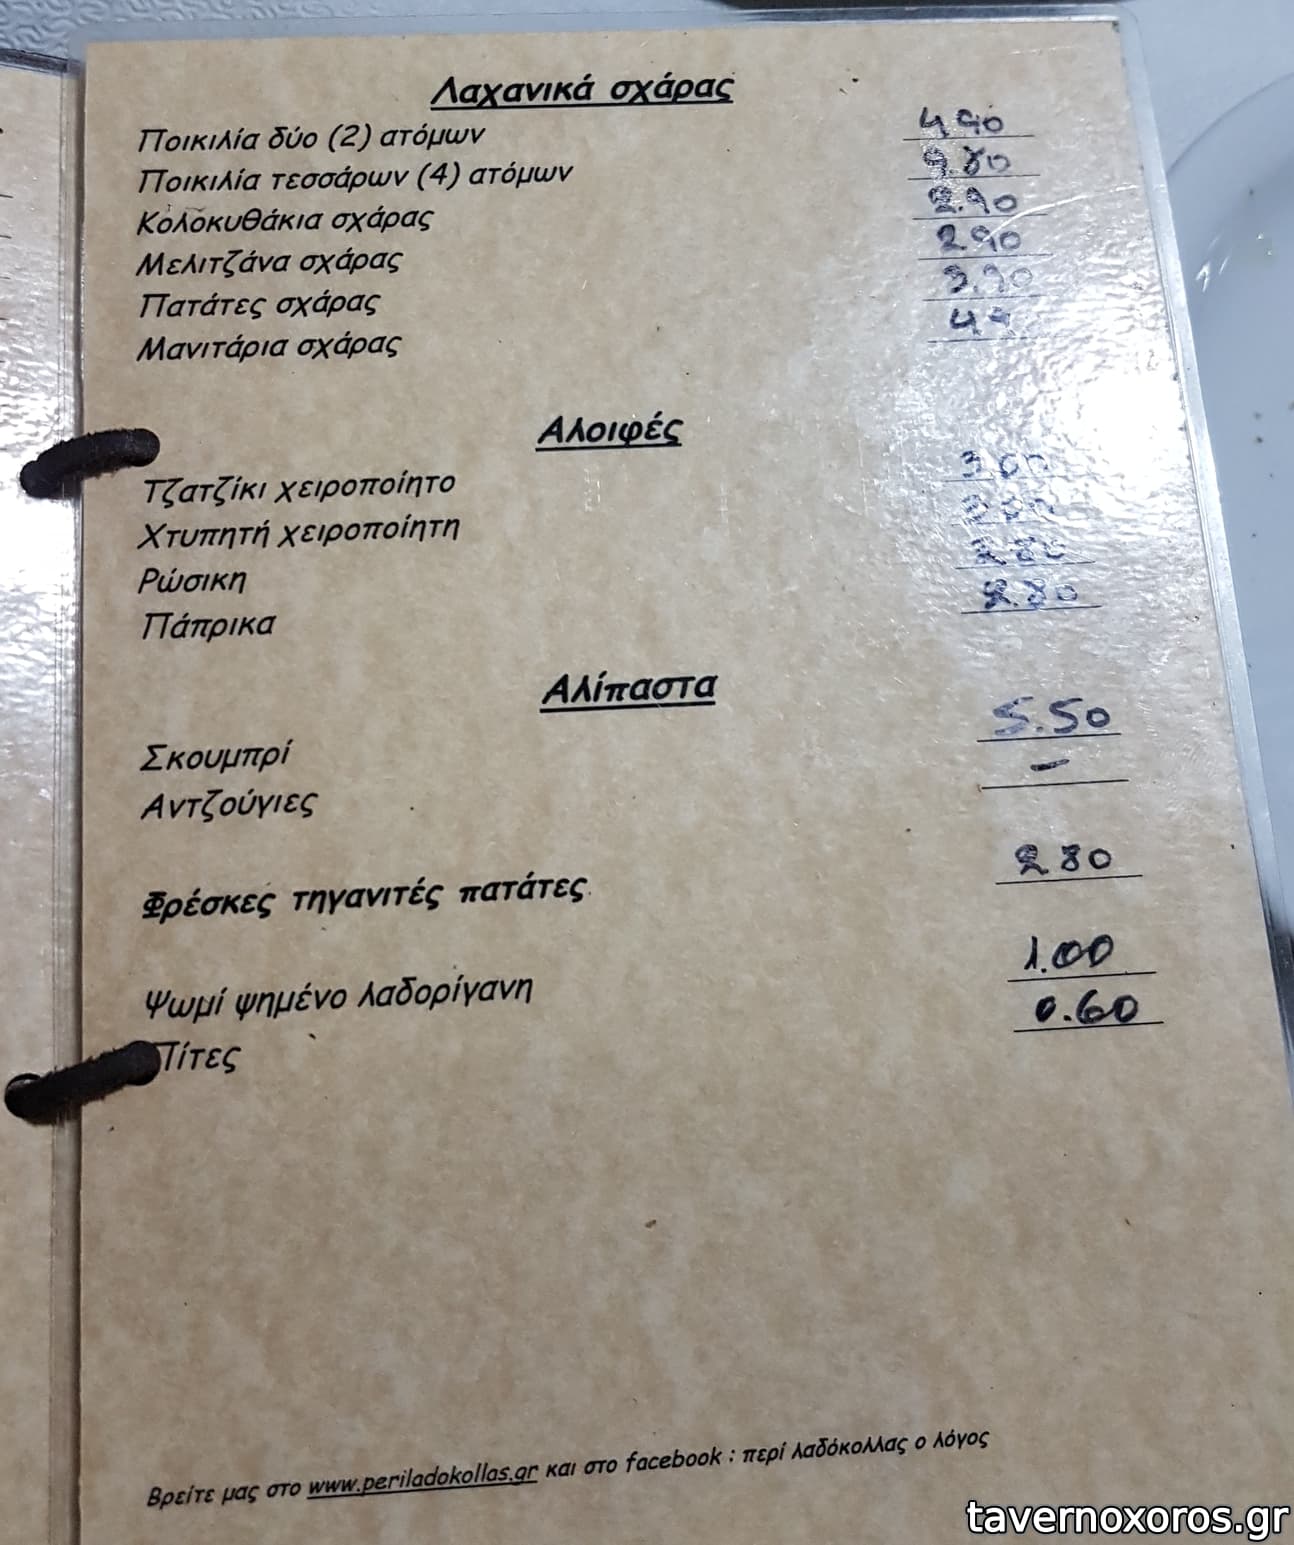 Λαχανικά σχάρας
Ποικιλία δύο (2) ατόμων 4.90
Ποικιλία τεσσάρων (4) ατόμων 9.80
Κολοκυθάκια σχάρας 2.90
Μελιτζάνα σχάρας 2.90
Πατάτες σχάρας 3.90
Μανιτάρια σχάρας
Αλοιφές
Τζατζίκι χειροποίητο 3.00
Χτυπητή χειροποίητη
Ρώσικη 2.80
Πάπρικα 2.80
Αλίπαστα
Σκουμπρί 5.50
Αντζούγιες –
Φρέσκες τηγανιτές πατάτες 2.80
Ψωμί ψημένο λαδορίγανη 1.00
Πίτες 0.60
Βρείτε μας στο www.periladokollas.gr και στο facebook : περί λαδόκολλας ο λόγος
tavernoxoros.gr